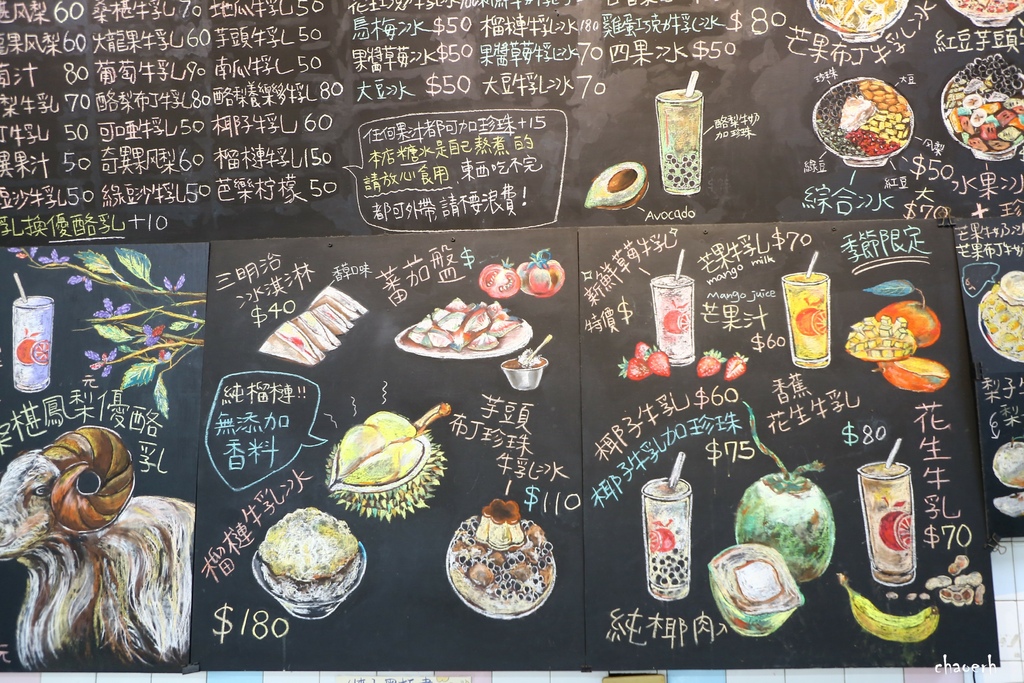 風梨60 桑椹牛乳70 地瓜牛乳50
火龍果風梨60 火龍果牛乳60 芋頭牛乳50
葡汁 80 葡萄牛乳90 南瓜牛乳50
酪梨牛乳70 酪梨布丁牛乳80 酪梨養樂多牛乳80
布丁牛乳 50 可啞牛乳50 椰子牛乳60
果汁 50 奇異果風梨60 榴槤牛乳150
豆沙牛乳50 綠豆沙牛乳50 芭樂柠檬50
乳換優酪乳+10
烏梅冰 $50 榴槤牛乳冰180 雞蛋紅克力牛乳冰 $80
果醬草莓冰$50 果醬草莓牛乳冰70 四果冰$50
大豆冰 $50 大豆牛乳冰70
任何果汁都可加珍珠+15
本店糖水是自己熬煮的
請放心食用 東西吃不完
都可外帶,請不要浪費!
酪梨牛奶
加珍珠
Avocado
芒果布丁牛乳冰
珍珠
大豆
綠豆
紅豆
鳳梨
$50
綜合冰
大
$70
紅豆芋頭
水果冰
+珍
椹鳳梨優酪乳
元
三明治
冰淇淋
$40
香草口味
蕃茄盤
$
純榴槤!!
無添加
香料
榴槤牛乳冰
$180
芋頭
布丁珍珠
牛乳冰
$110
新鮮草莓牛乳
特價$
芒果牛乳$70
mango milk
Mango juice
芒果汁
$60
季節限定
椰子牛乳$60
椰子牛乳加珍珠
$75
香蕉
花生牛乳
$80
花生牛乳
$70
純椰肉
芒果牛奶
芒果布丁
梨子
chaoerh